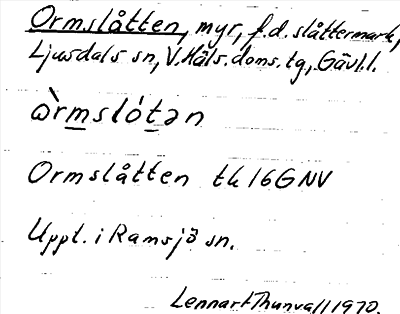 Ormslåtten, myr, f.d. slåttermark,
Ljusdals sn, V.Häls. doms. tg, Gävl.l.
ὼrmslótən
Ormslåtten tk 16G NV
Uppt. i Ramsjö sn.
Lennart Thunvall 1970.